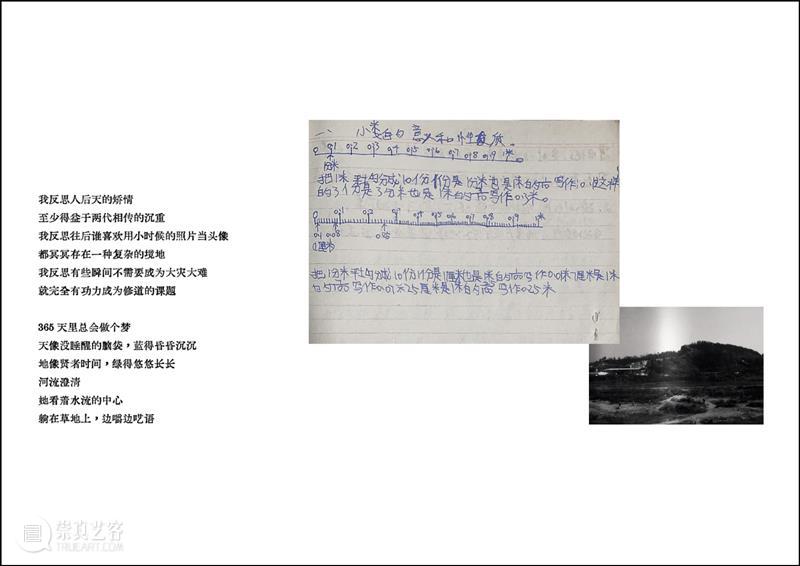 我反思人后天的矫情
至少得益于两代相传的沉重
我反思往后谁喜欢用小时候的照片当头像
都冥冥存在一种复杂的境地
我反思有些瞬间不需要成为大灾大难
就完全有功力成为修道的课题
365 天里总会做个梦
天像没睡醒的脑袋，蓝得昏昏沉沉
地像贤者时间，绿得悠悠长长
河流澄清
她看着水流的中心
躺在草地上，边嚼边呓语
一、 小 的意义和性质。
0 0.1 0.2 0.3 0.4 0.5 0.6 0.7 0.8 0.9 1米
1分米
把1米平均分成10份1份是1分米也是1米的 写作0.1米这样
的3个分是3分米也是1米的 写作0.3米。
把1分米平均分成10份1份是1厘米也是1米的 写作0.01米7厘米是1米
的 写作0.07米25厘米是1米的 写作0.25米
崇真艺客
TRUEART.COM